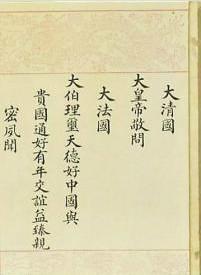 大清國
大皇帝敬問
大法國
大伯理璽天德好中國與
貴國通好有年交誼益臻親
密夙聞